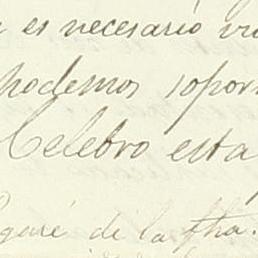 es necesario
podemos sopor
Celebro esta
de la fha.